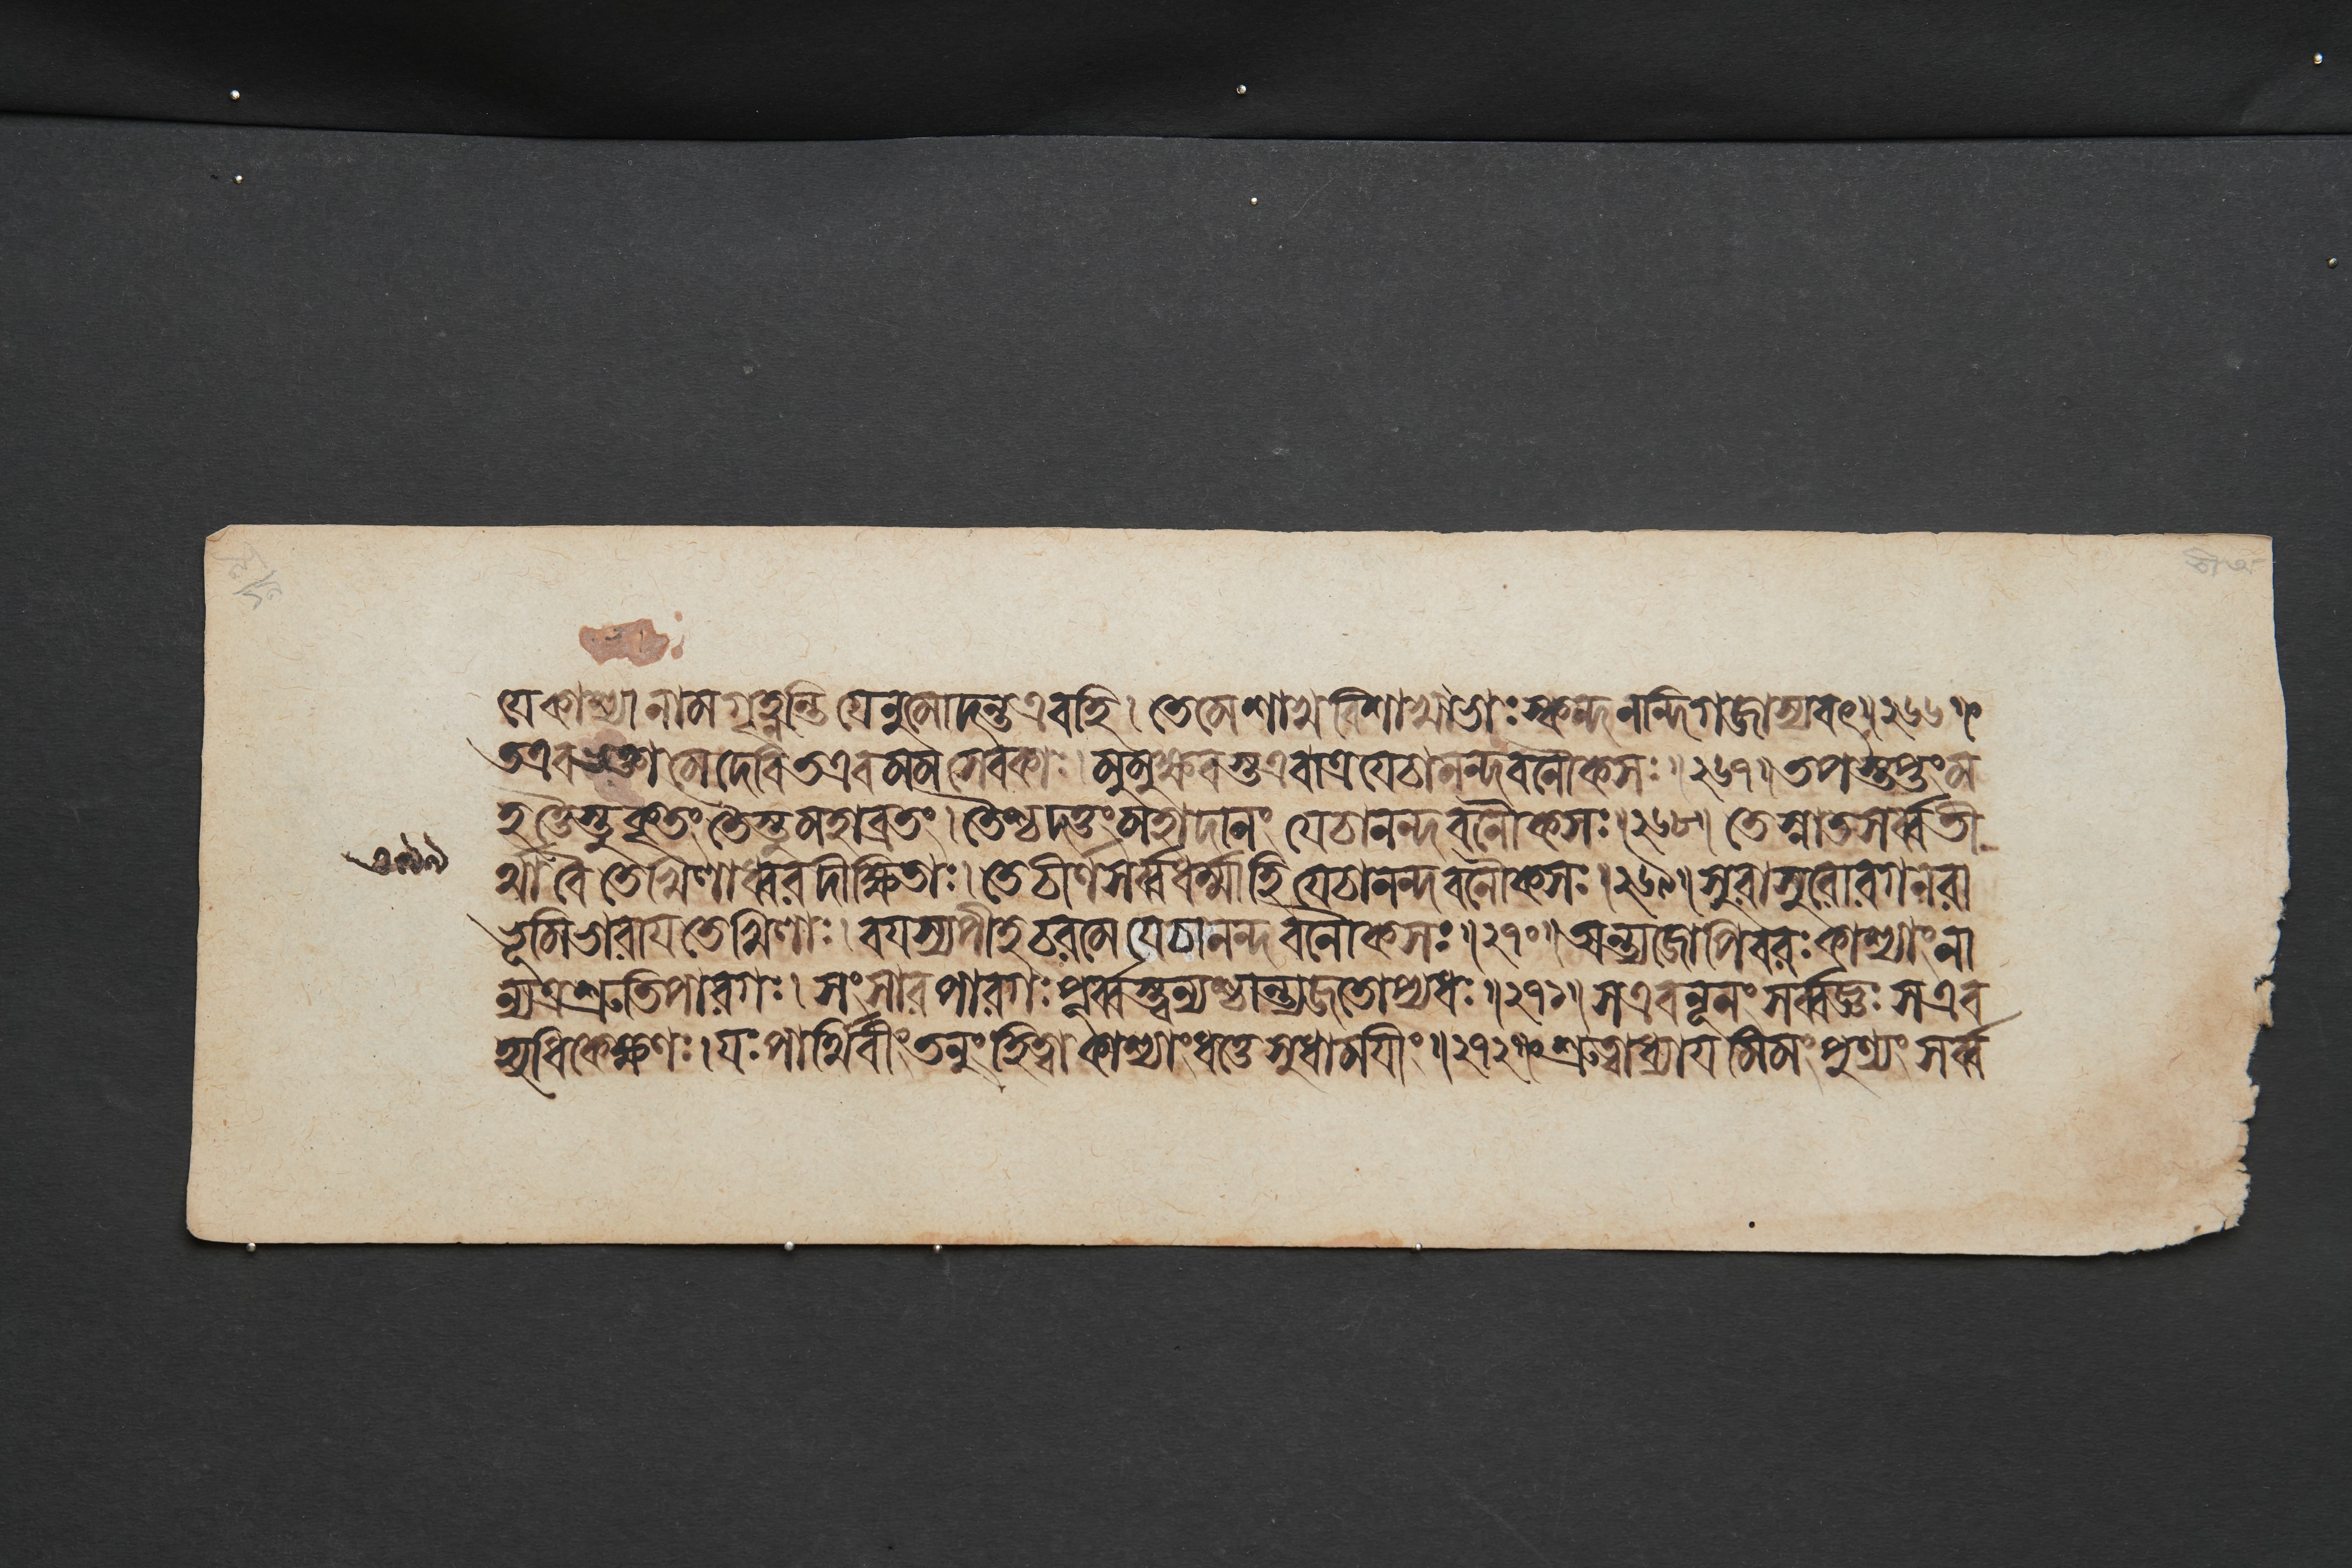 যে কাশ্যা নাম গৃহ্ণন্তি যেনুমোদন্ত এব হি। তে মে শাখ বিশাখাভাঃ স্কন্দনন্দিগজাস্যবৎ॥২৬৬॥
ত এব ভক্তা মে দেবি ত এব মম সেবকাঃ। মুমুক্ষবস্ত এবাত্র যে চানন্দবনৌকসঃ॥২৬৭॥ তপস্তপ্তং ম
হত্তৈস্তু কৃতং তৈস্তু মহাব্রতং। তৈশ্চ দত্তং মহাদানং যে চানন্দবনৌকসঃ॥২৬৮॥ তে স্নাতসর্ব্বতী
৩৯৯
র্থা বৈ তেখিলাধ্বরদীক্ষিতাঃ। তে চীর্ণসর্ব্বধর্ম্মা হি যে চানন্দবনৌকসঃ॥২৬৯॥ সুরাসুরোরগনরা
ভূমিভারায তেখিলাঃ। বযস্যপীহ চরমে যে চানন্দবনৌকসঃ॥২৭০॥ অন্ত্যজোপি বরঃ কাশ্যাং না
ন্যত্র শ্রুতিপারগঃ। সংসারপারগঃ পূর্ব্বস্ত্বন্যশ্চান্ত্যজতোপ্যধঃ॥২৭১॥ স এব নূনং সর্ব্বজ্ঞঃ স এব
হ্যধিকেক্ষণঃ। যঃ পার্থিবীং তনুং হিত্বা কাশ্যাং ধত্তে সুধামযীং॥২৭২॥ শ্রুত্বাধ্যাযমিমং পুণ্যং সর্ব্ব